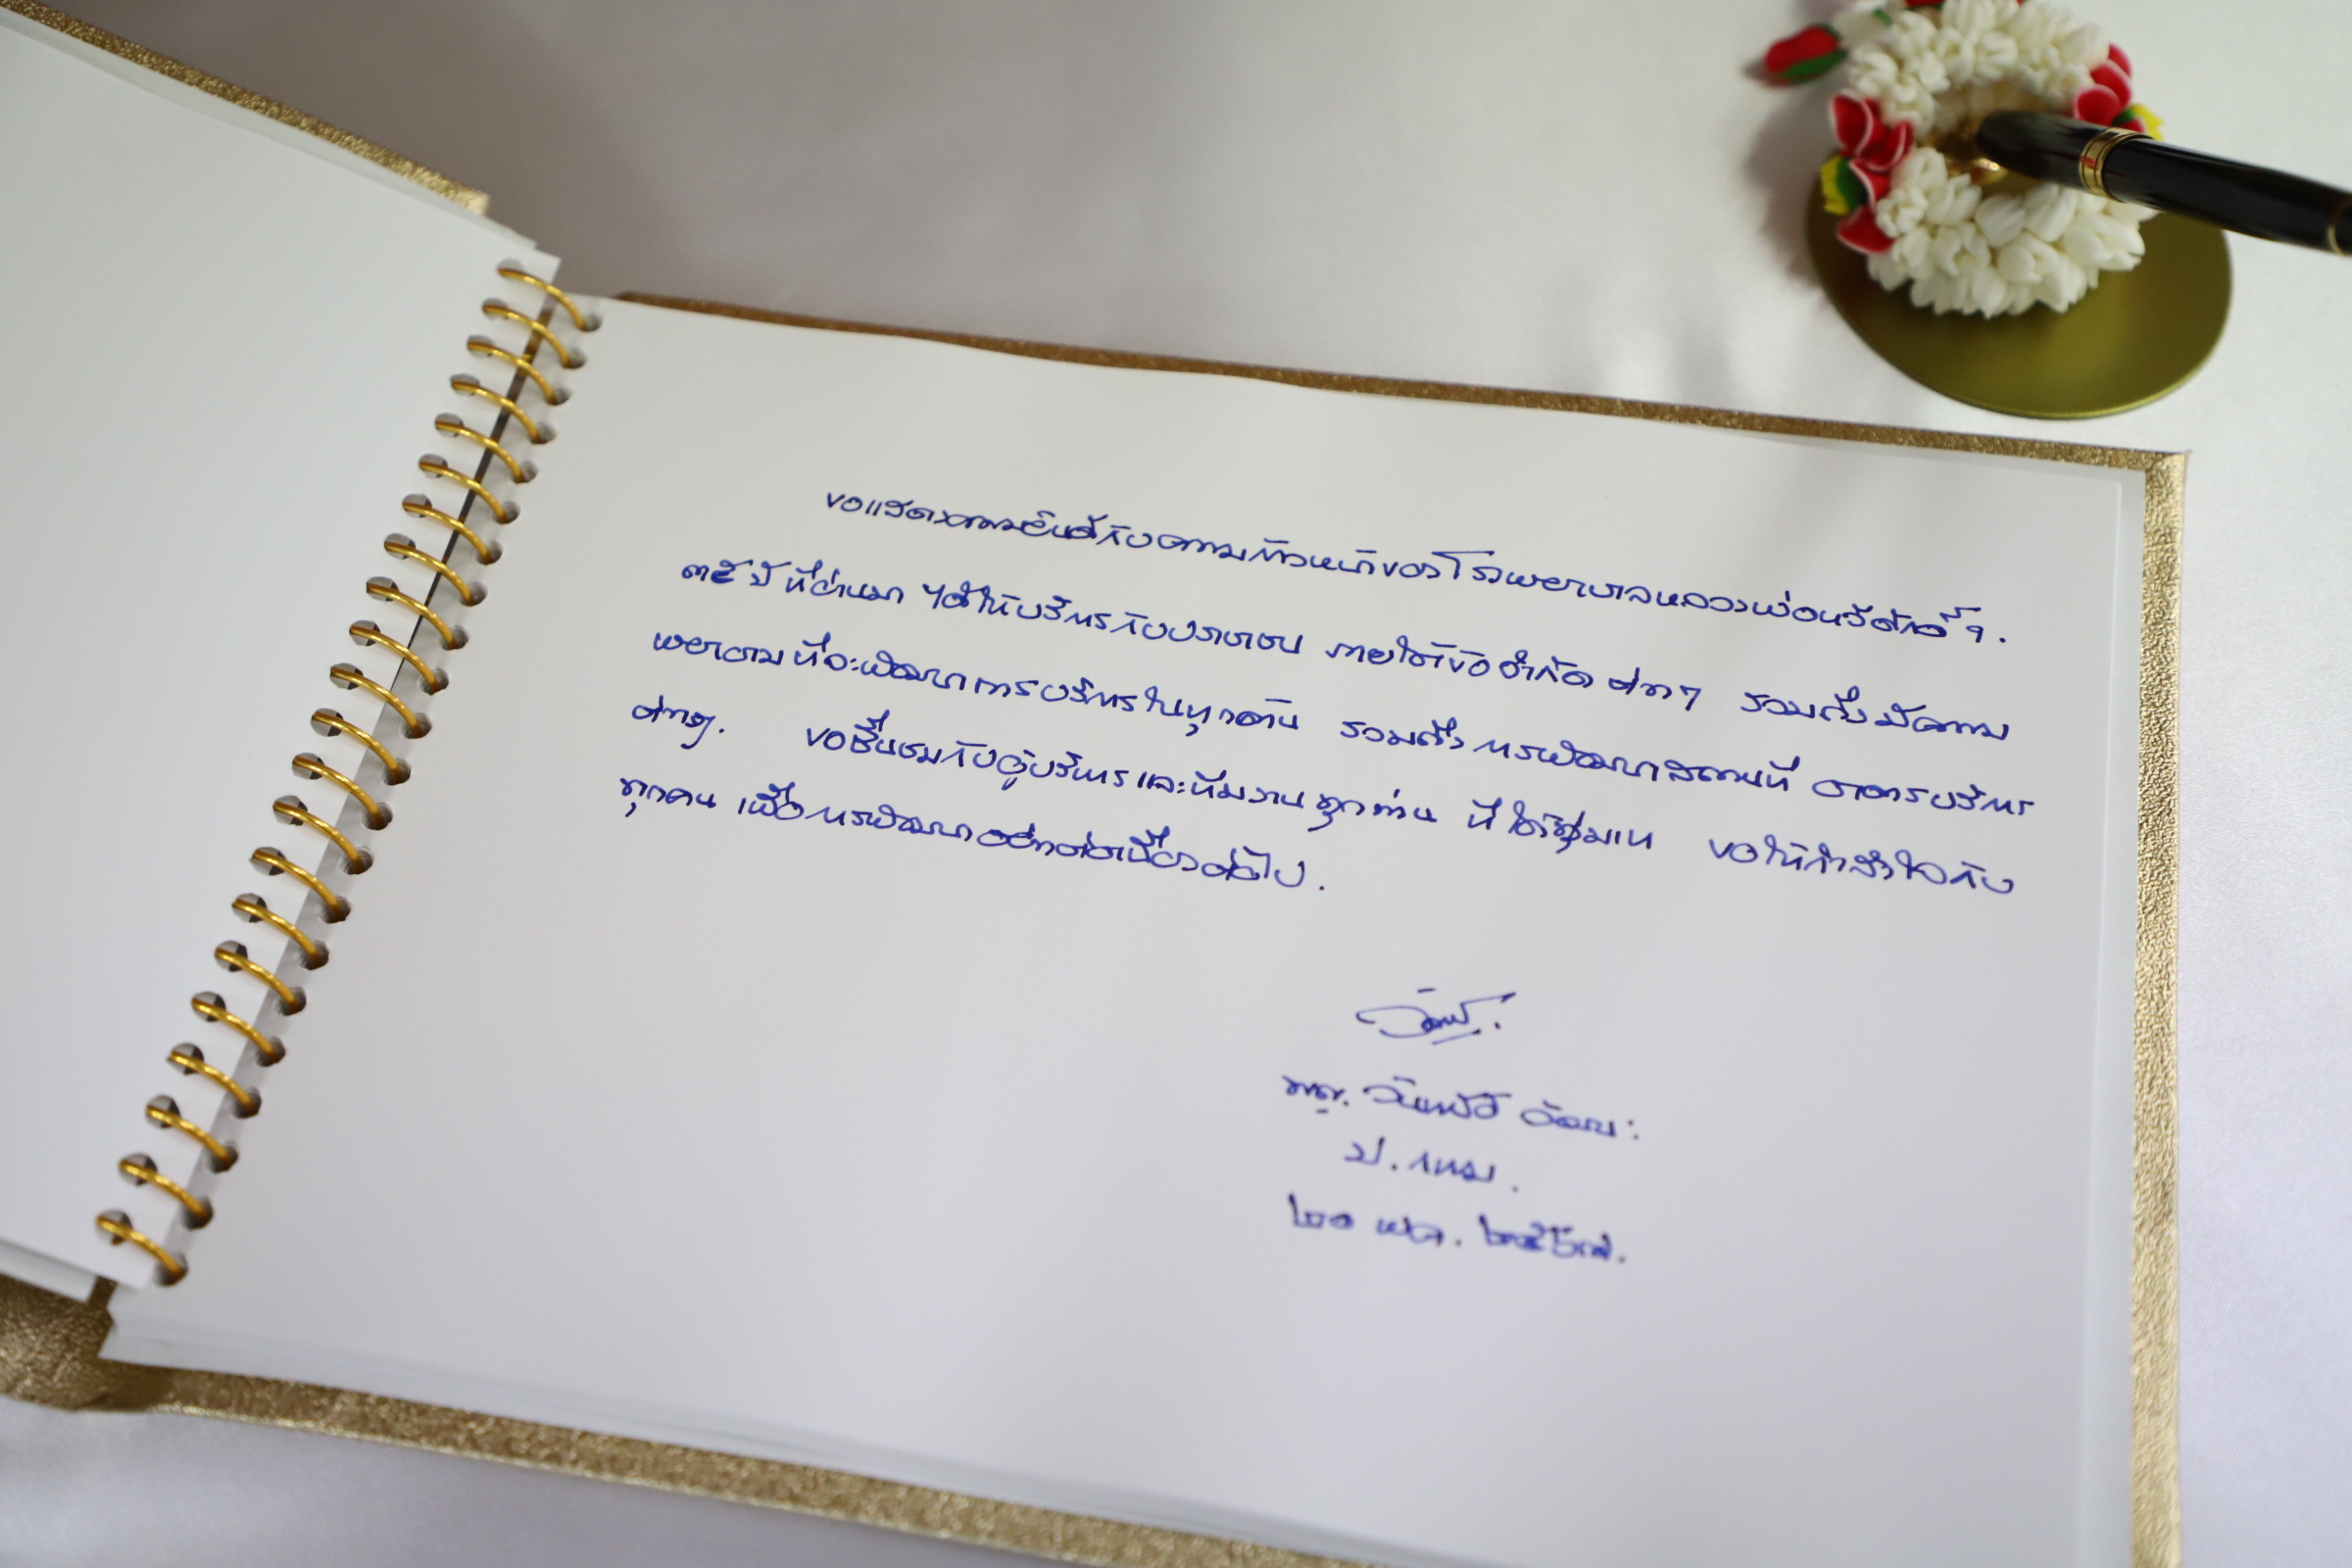 ขอแสดงความยินดีกับความก้าวหน้าของโรงพยาบาลหลวงพ่อทวีศักดิ์ ฯ.
๓๕ ปี ที่ผ่านมา ได้ให้บริการกับประชาชน ภายใต้ข้อจำกัด ต่างๆ รวมถึงมีความ
พยายามที่จะพัฒนาการบริการในทุกด้าน รวมถึง การพัฒนาสถานที่ อาคารบริการ
ต่างๆ. ขอชื่นชมกับผู้บริหารและทีมงานทุกท่าน ที่ได้ทุ่มเท ขอให้กำลังใจกับ
ทุกคน เพื่อการพัฒนาอย่างต่อเนื่องต่อไป.
พญ. วันทนีย์ วัฒนะ
ป. กทม.
๒๐ พค. ๒๕๖๗.